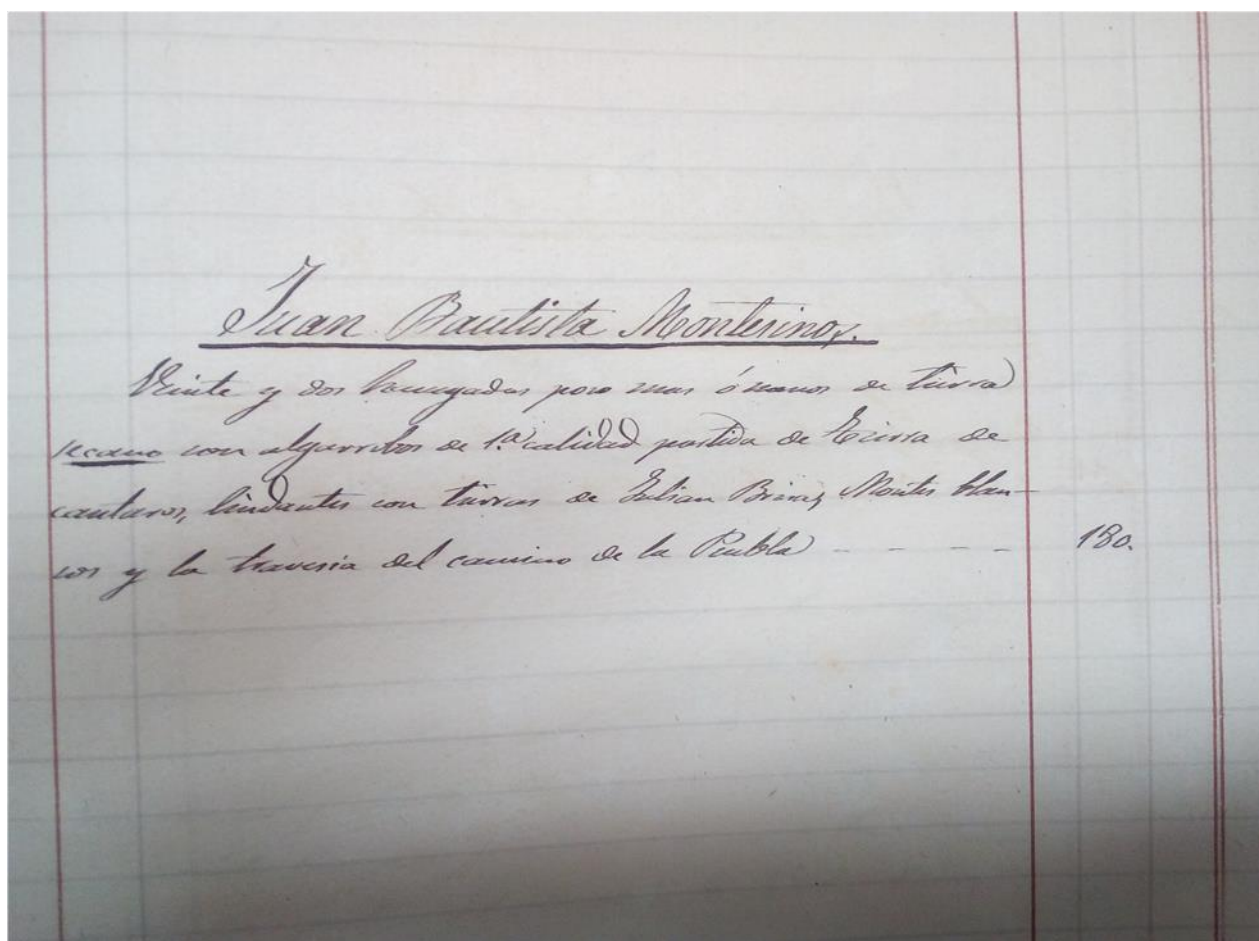 Juan Bautista Montesinos.
Veinte y dos hanegadas poco mas ó menos de tierra
secano con algarrobos de 1.ª calidad partida de Tierra de
cantaros, lindantes con tierras de Julian Montes blan-
cos y la travesia del camino de la Puebla - - - - 180.